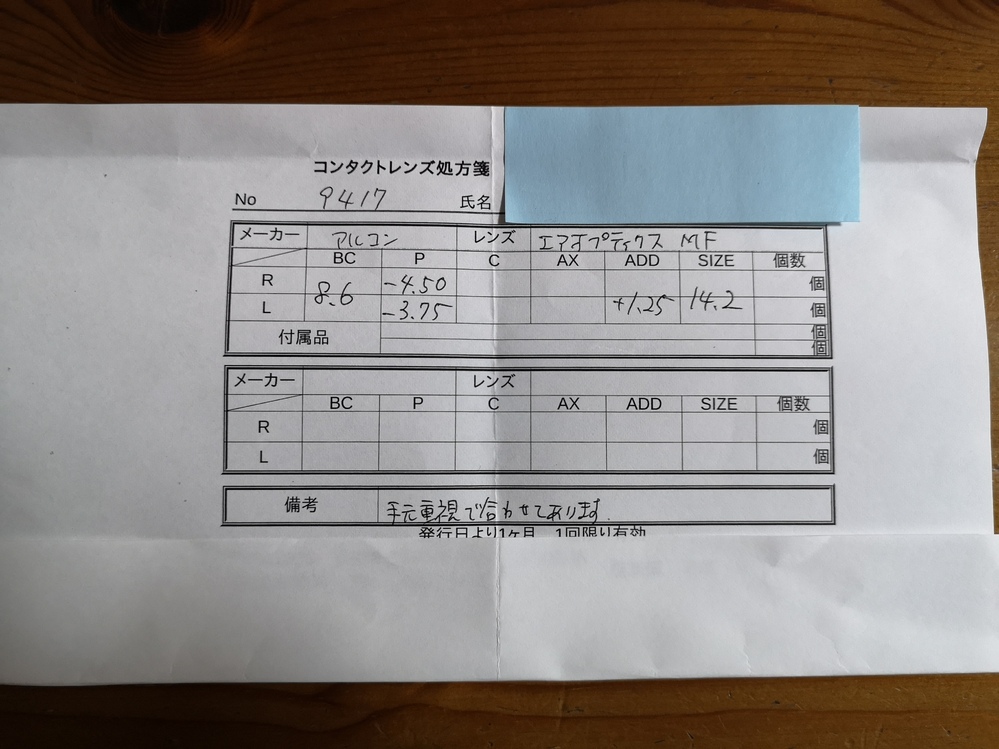 コンタクトレンズ処方箋
No 9417 氏名
メーカー アルコン レンズ エアオプティクス MF
BC P C AX ADD SIZE 個数
R 8.6 -4.50 +1.25 14.2 個
L -3.75 個
付属品 個
個
メーカー レンズ
BC P C AX ADD SIZE 個数
R 個
L 個
備考 手元重視で合わせてあります.
発行日より1ヶ月 1回限り有効